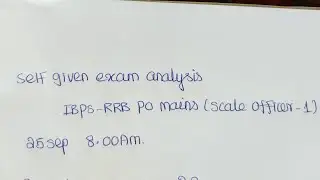 self given exam analysis
IBPS-RRB PO mains (scale officer-1)
25 sep 8.00Am.